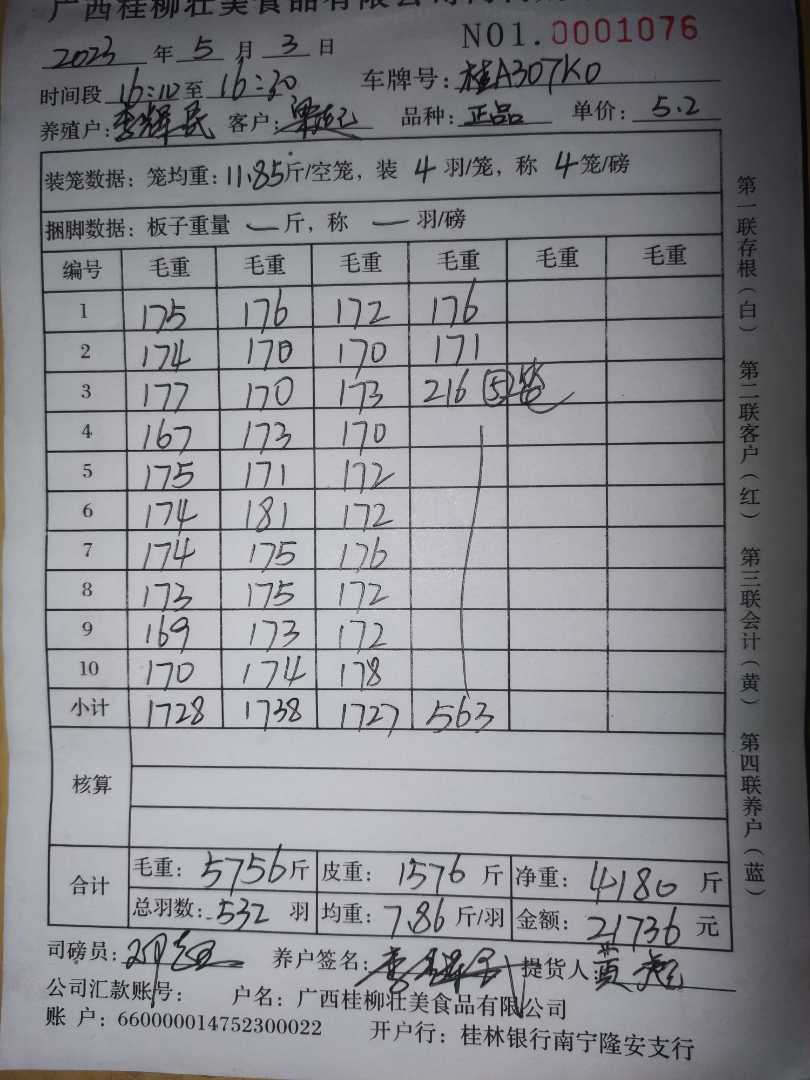 广西桂柳壮美食品有限公司
2023 年 5 月 3 日 NO1.0001076
时间段 16:10 至 16:30 车牌号: 桂A307K0
养殖户: 李辉民 客户: 品种: 正品 单价: 5.2
装笼数据: 笼均重: 11.85斤/空笼, 装 4 羽/笼, 称 4笼/磅
捆脚数据: 板子重量 — 斤, 称 — 羽/磅
编号 毛重 毛重 毛重 毛重 毛重 毛重
1 175 176 172 176
2 174 170 170 171
3 177 170 173 216 ⑤笼
4 167 173 170
5 175 171 172
6 174 181 172
7 174 175 176
8 173 175 172
9 169 173 172
10 170 174 178
小计 1728 1738 1727 563
核算
合计 毛重: 5756斤 皮重: 1576 斤 净重: 4180 斤
总羽数: 532 羽 均重: 7.86 斤/羽 金额: 21736 元
司磅员: 养户签名: 提货人
公司汇款账号: 户名: 广西桂柳壮美食品有限公司
账 户: 660000014752300022 开户行: 桂林银行南宁隆安支行
第一联存根(白) 第二联客户(红) 第三联会计(黄) 第四联养户(蓝)